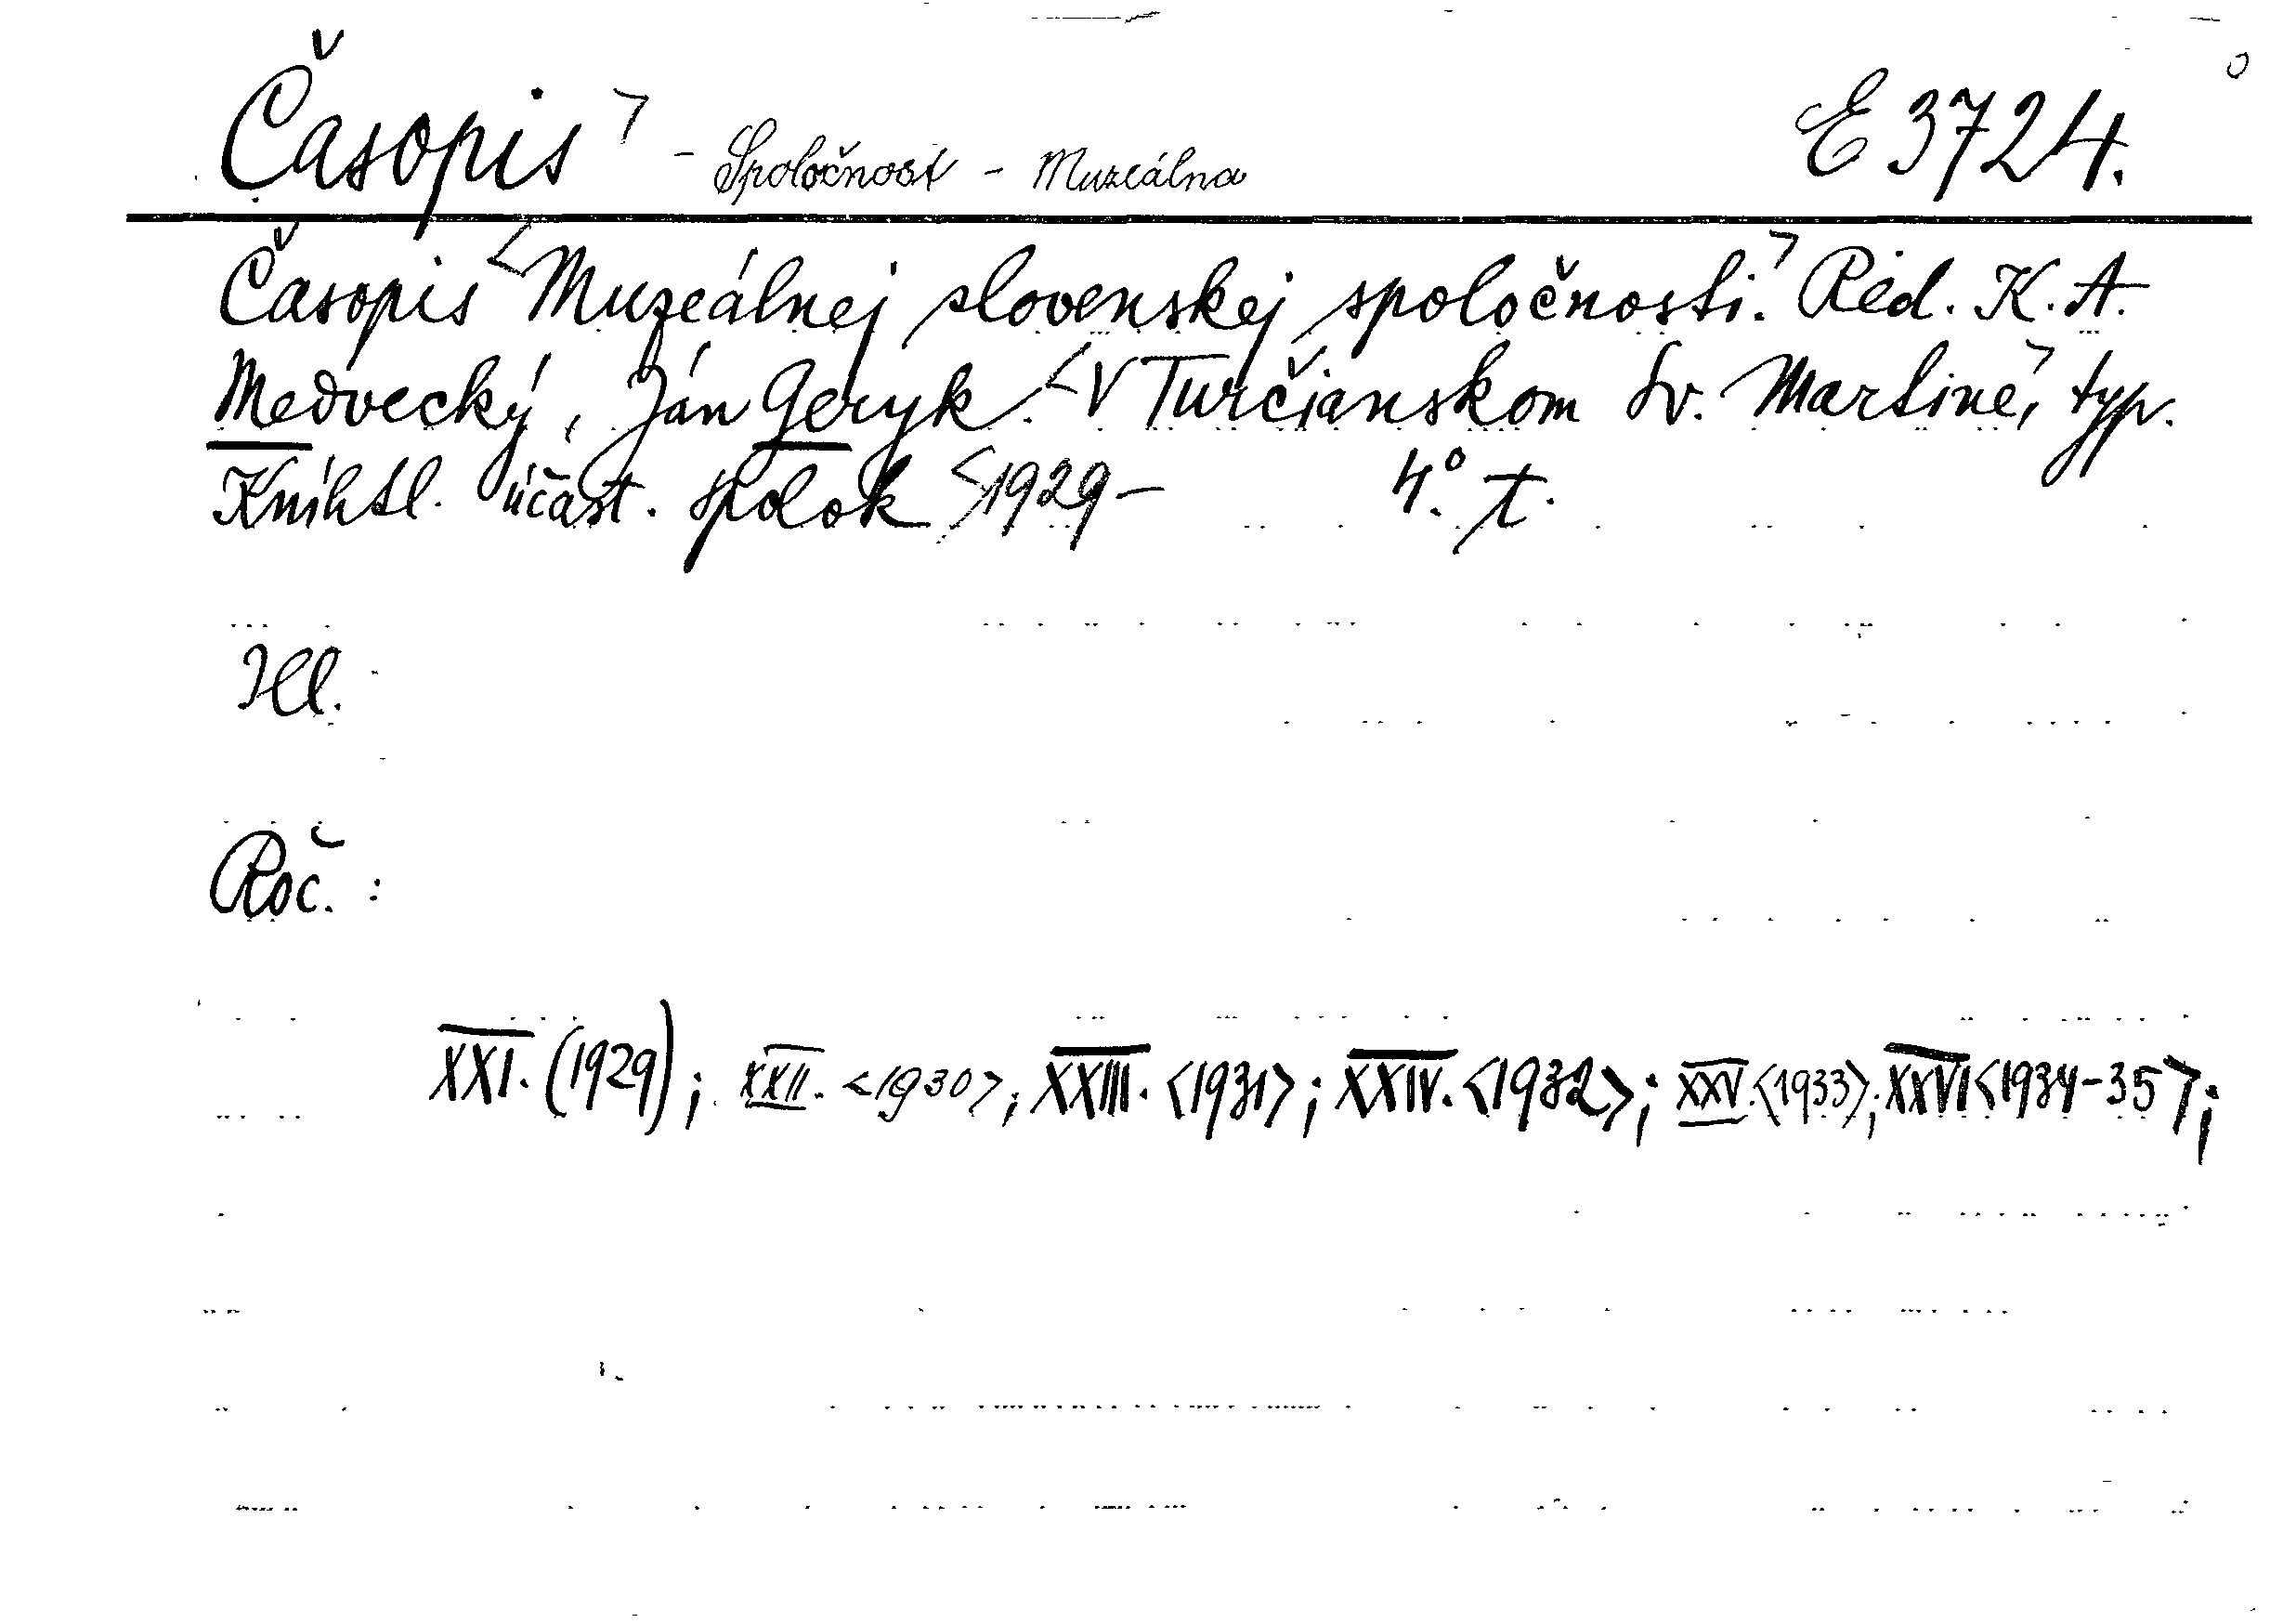 Časopis > - Spoločnosť - Muzeálna E 3724.
Časopis <Muzeálnej slovenskej spoločnosti.> Red. K. A.
Medvecký, Ján Geryk. <V Turčianskom Sv. Martine,> typ.
Kníhtl. účast. spolok <1929- 4°. t.
Ill.
Roč. :
XXI. (1929); XXII. <1930>; XXIII. <1931>; XXIV. <1932>; XXV. <1933>; XXVI <1934-35>;